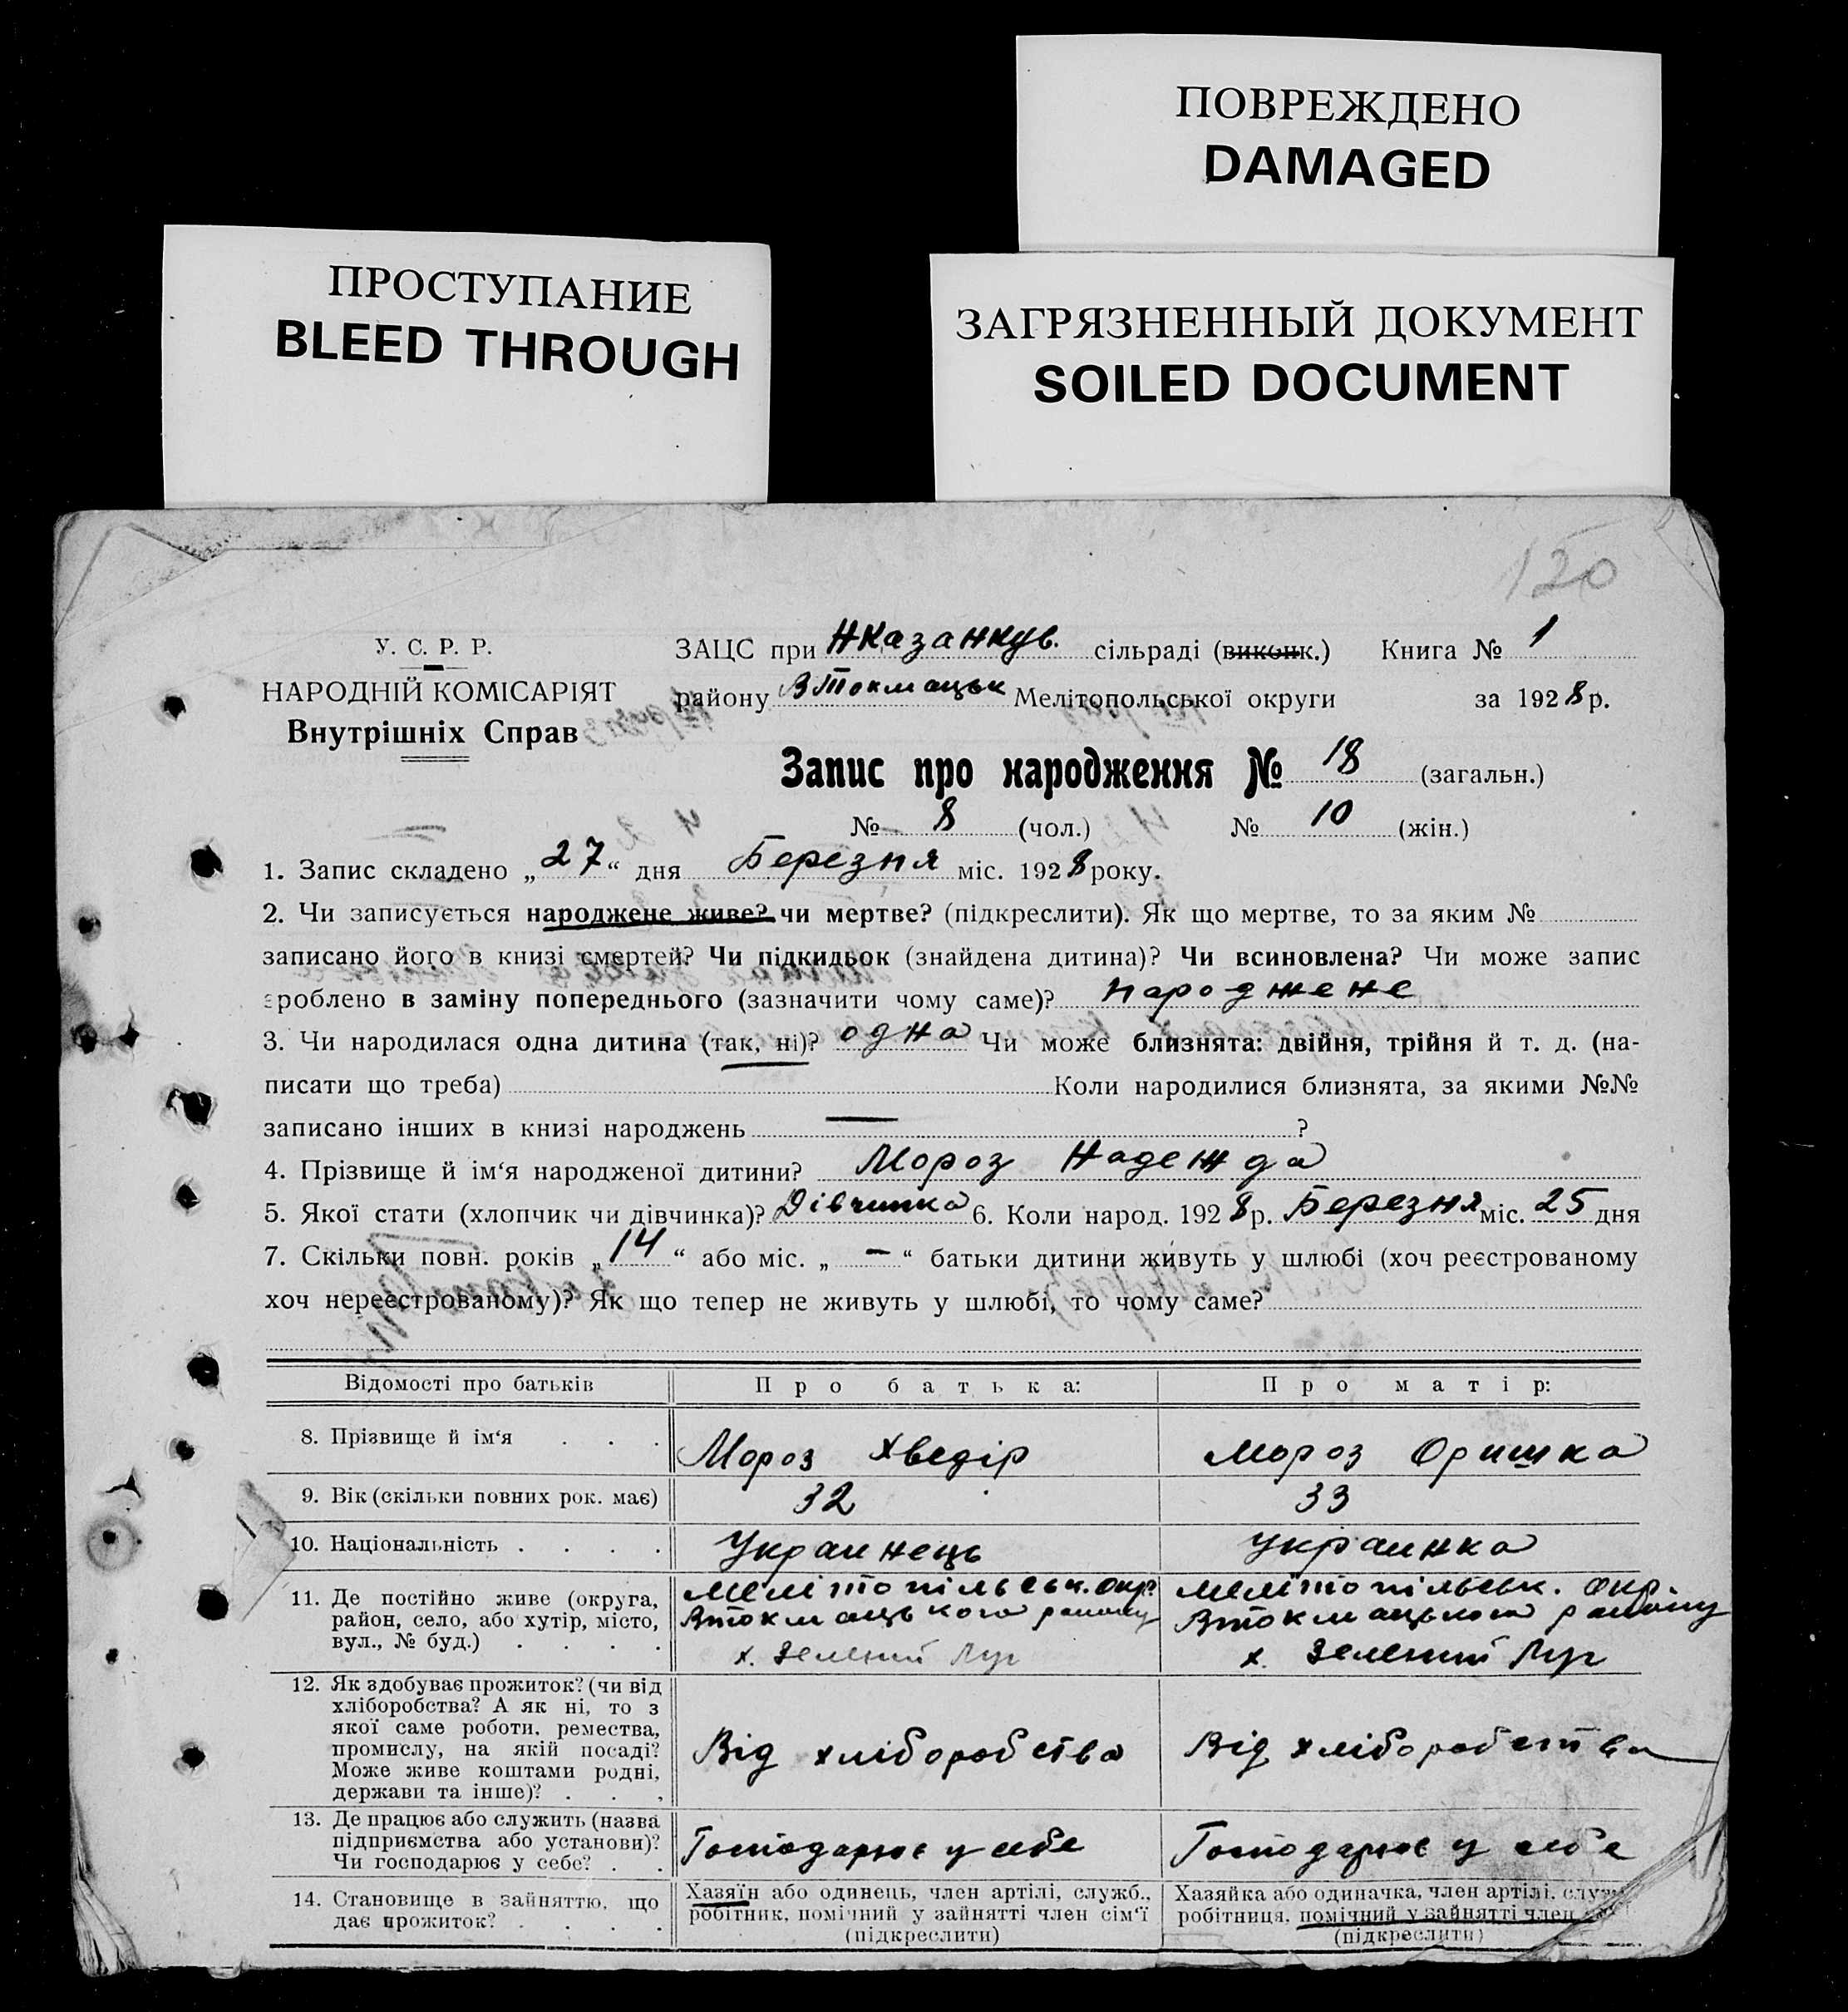 ПОВРЕЖДЕНО
DAMAGED
ПРОСТУПАНИЕ
BLEED THROUGH
ЗАГРЯЗНЕННЫЙ ДОКУМЕНТ
SOILED DOCUMENT
120
У. С. Р. Р.
НАРОДНІЙ КОМІСАРІЯТ
Внутрішніх Справ
ЗАЦС при НКазанкув. сільраді (виконк.) Книга № 1
району ВТокмацьк Мелітопольської округи за 1928 р.
Запис про народження № 18 (загальн.)
№ 8 (чол.) № 10 (жін.)
1. Запис складено „27“ дня Березня міс. 1928 року.
2. Чи записується народжене живе? чи мертве? (підкреслити). Як що мертве, то за яким №
записано його в книзі смертей? Чи підкидьок (знайдена дитина)? Чи всиновлена? Чи може запис
зроблено в заміну попереднього (зазначити чому саме)? Народжене
3. Чи народилася одна дитина (так, ні)? одна Чи може близнята: двійня, трійня й т. д. (на-
писати що треба) Коли народилися близнята, за якими №№
записано інших в книзі народжень — ?
4. Прізвище й ім‘я народженої дитини? Мороз Надежда
5. Якої стати (хлопчик чи дівчинка)? Дівчинка 6. Коли народ. 1928 р. Березня міс. 25 дня
7. Скільки повн. років „14“ або міс. „—“ батьки дитини живуть у шлюбі (хоч реєстрованому
хоч нереєстрованому)? Як що тепер не живуть у шлюбі, то чому саме?
Відомості про батьків Про батька: Про матір:
8. Прізвище й ім‘я . . . Мороз Хведір Мороз Оришка
9. Вік (скільки повних рок. має) 32 33
10. Національність . . . . Украинець Украинка
11. Де постійно живе (округа,
район, село, або хутір, місто,
вул., № буд.) . . . .
Мелітопільськ. окр.
Втокмацького району
х. Зелений Луг
Мелітопільськ. окр.
Втокмацького району
х. Зелений Луг
12. Як здобуває прожиток? (чи від
хліборобства? А як ні, то з
якої саме роботи, ремества,
промислу, на якій посаді?
Може живе коштами родні,
держави та інше)? . . .
Від хлібороб ства
Від хліборобства
13. Де працює або служить (назва
підприємства або установи)?
Чи господарює у себе? . .
Господарює у себе
Господарює у себе
14. Становище в зайняттю, що
дає прожиток? . . . .
Хазяїн або одинець, член артілі, служб.,
робітник, помічний у зайнятті член сім‘ї
(підкреслити)
Хазяйка або одиначка, член артілі,
робітниця, помічний у зайнятті член
(підкреслити)